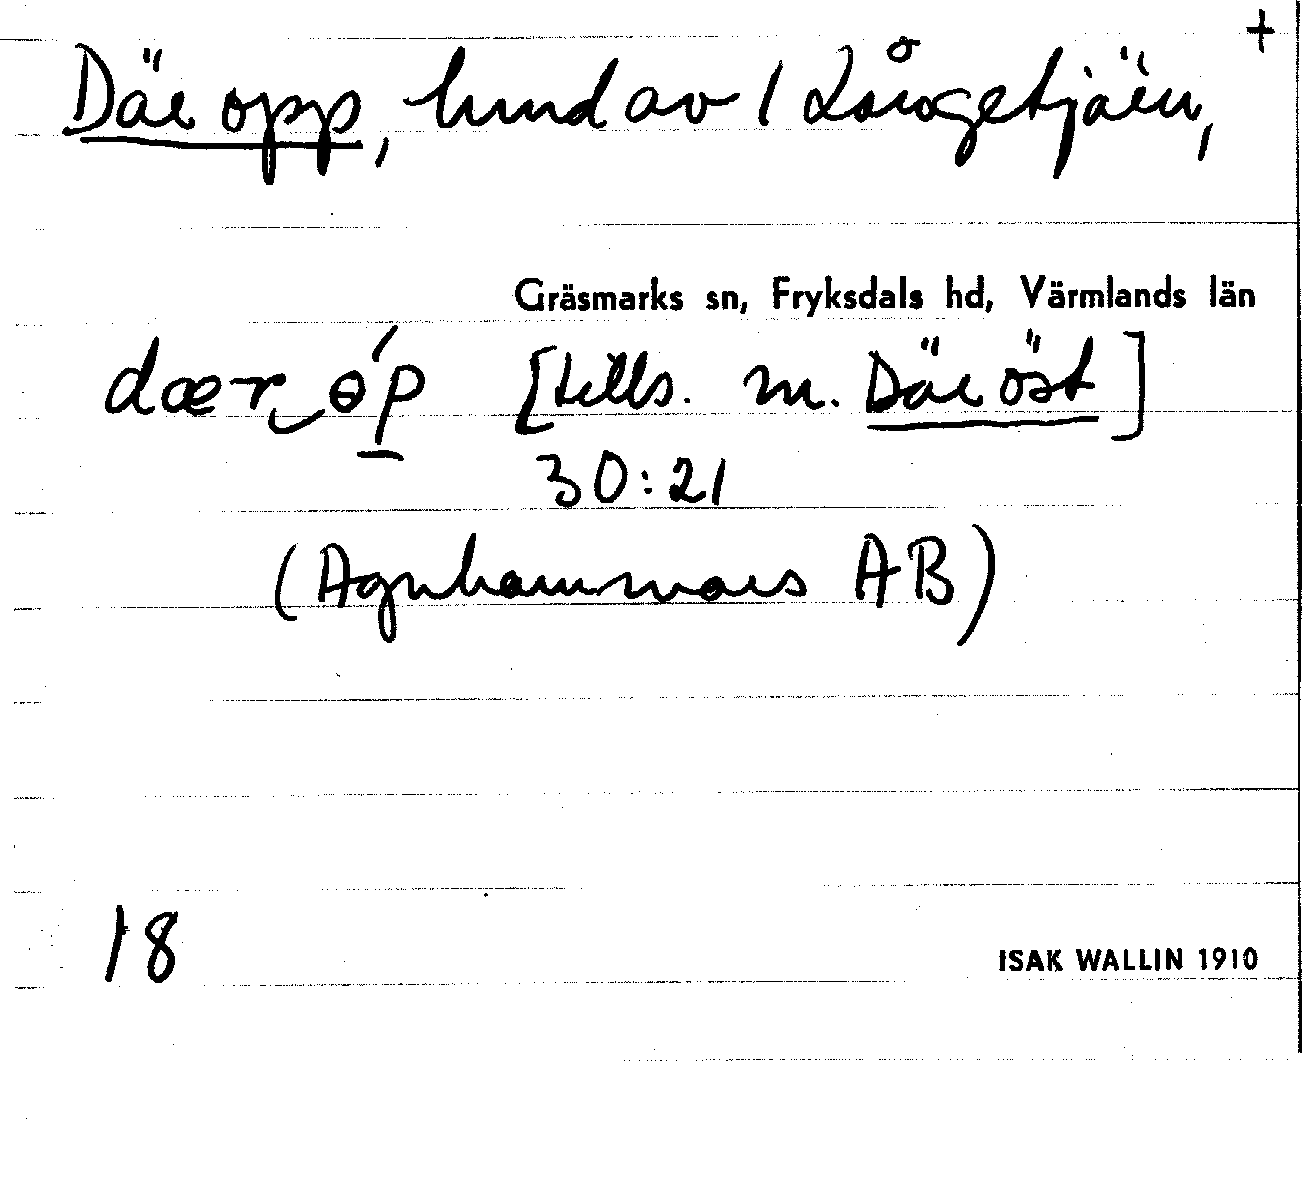 +
Där opp, hmd av 1 Långetjärn,
Gräsmarks sn, Fryksdals hd, Värmlands län
dær‿ɵ́p [tills. m. Där öst]
30:21
(Agnhammars AB)
18
ISAK WALLIN 1910